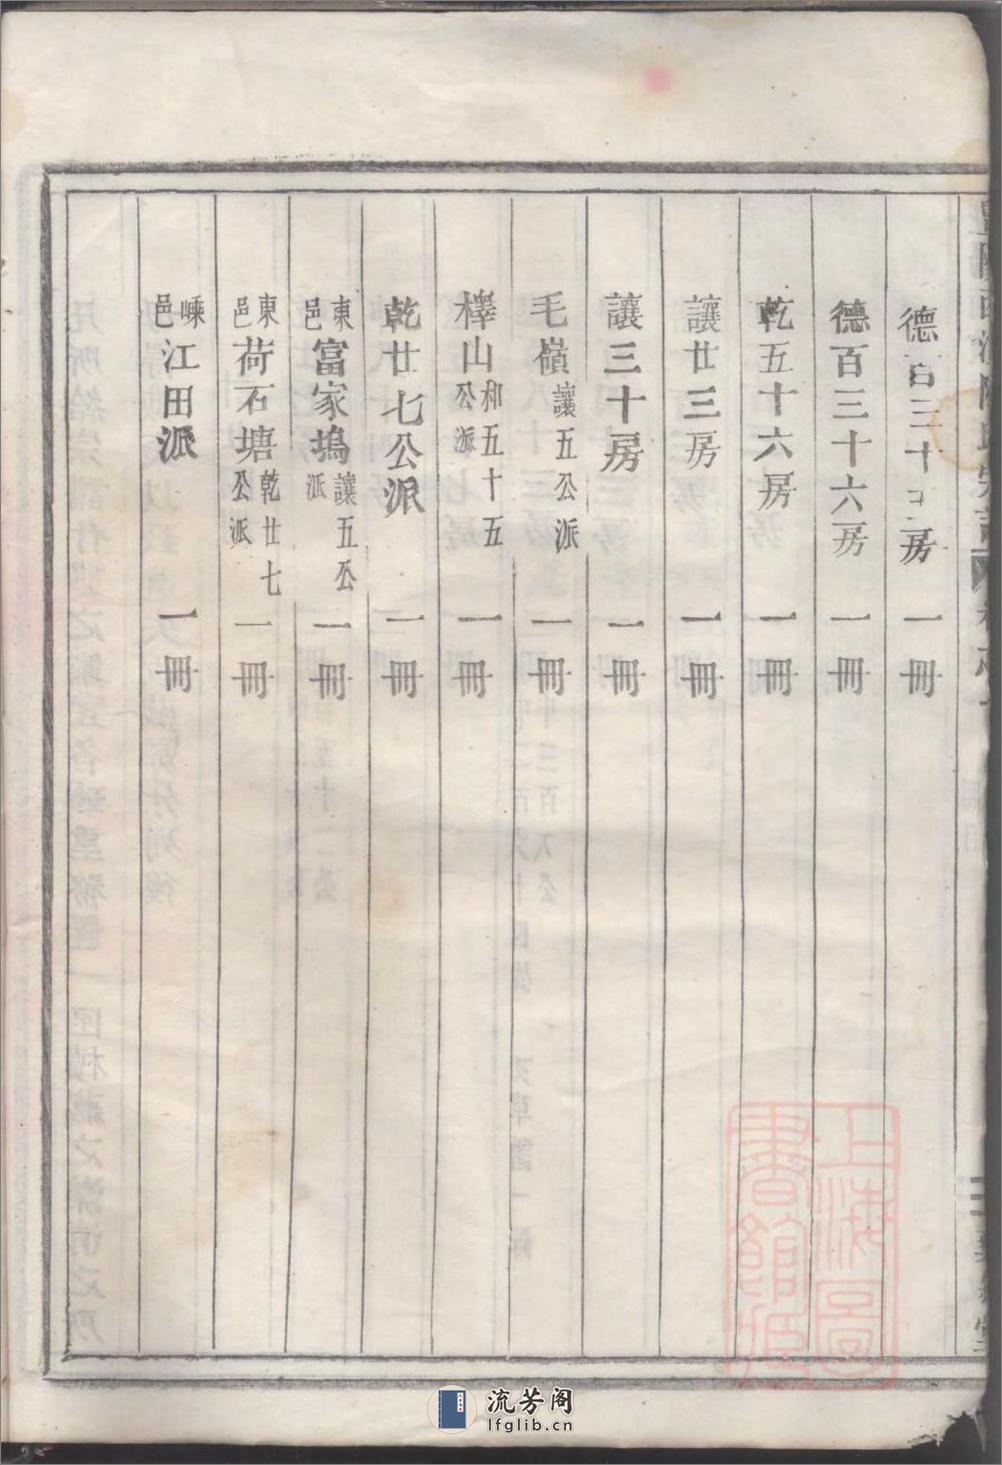 德百三十房 一冊
德百三十六房 一冊
乾五十六房 一冊
讓廿三房 一冊
讓三十房 一冊
毛嶺讓五公派 一冊
檡山和五十五公派 一冊
乾廿七公派 一冊
東邑富家塢讓五公派 一冊
東邑荷石塘乾廿七公派 一冊
嵊邑江田派 一冊
上海圖書館藏
流芳阁
lfglib.cn